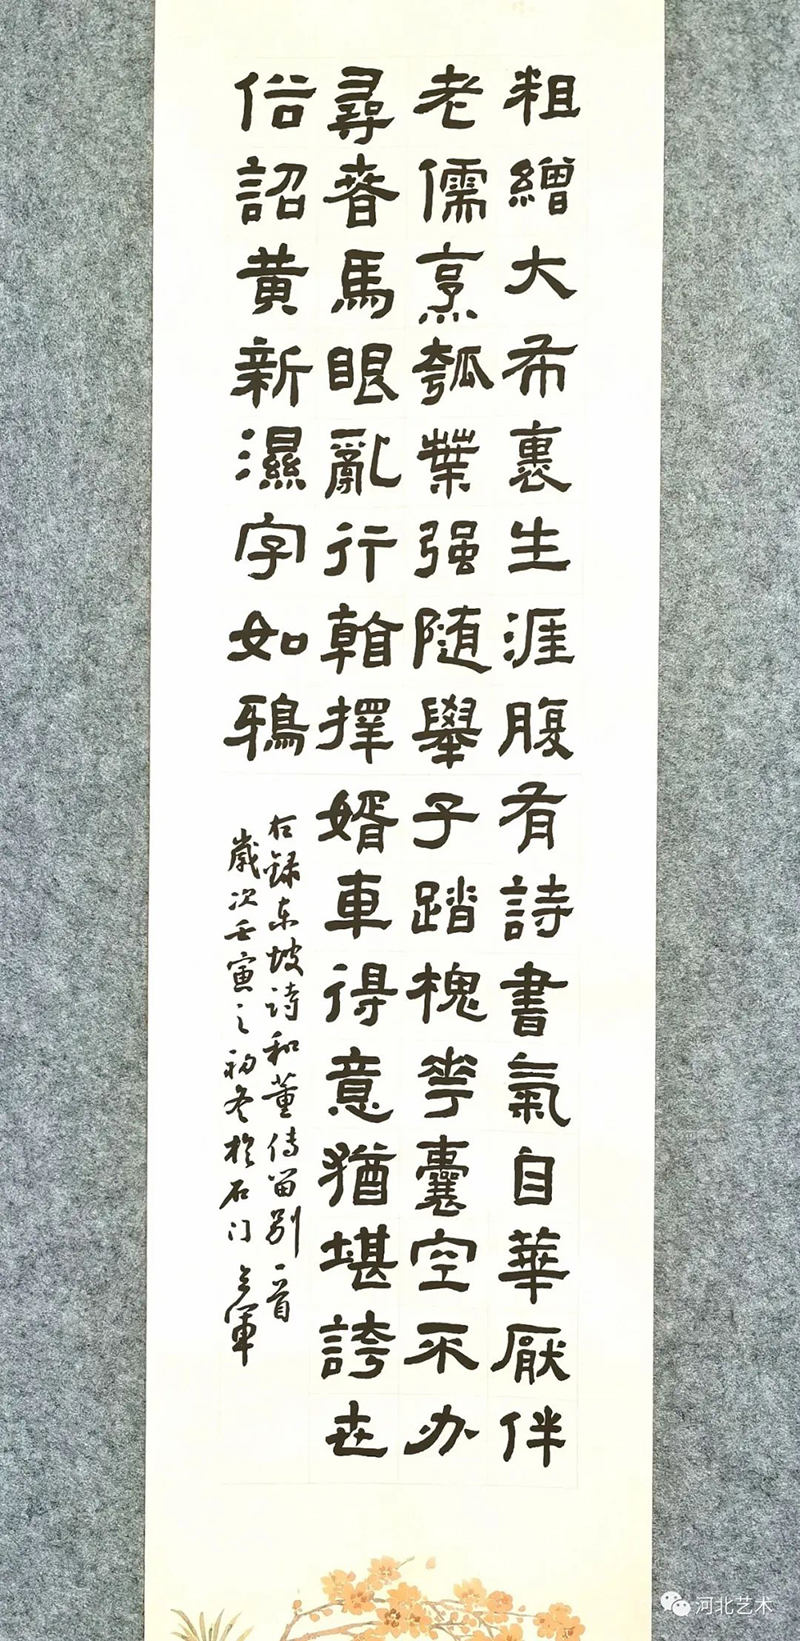 粗繒大布裹生涯腹有詩書氣自華厭伴
老儒烹瓠葉强随舉子踏槐花囊空不办
尋春馬眼亂行翰擇婿車得意猶堪誇世
俗詔黄新濕字如鴉
右録東坡詩和董傳留别一首
歲次壬寅之初冬於石门
河北艺术